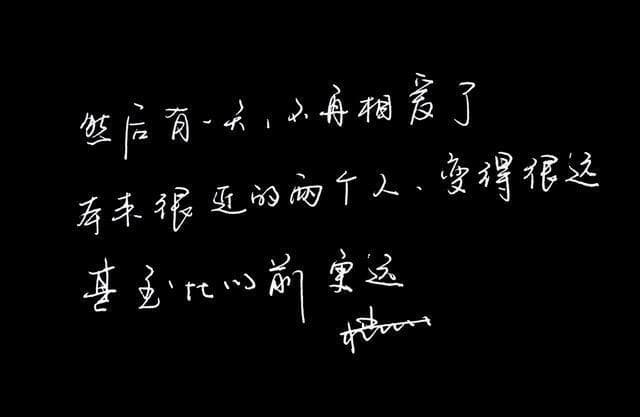 然后有一天，不再相爱了
本来很近的两个人、变得很远
甚至比以前更远